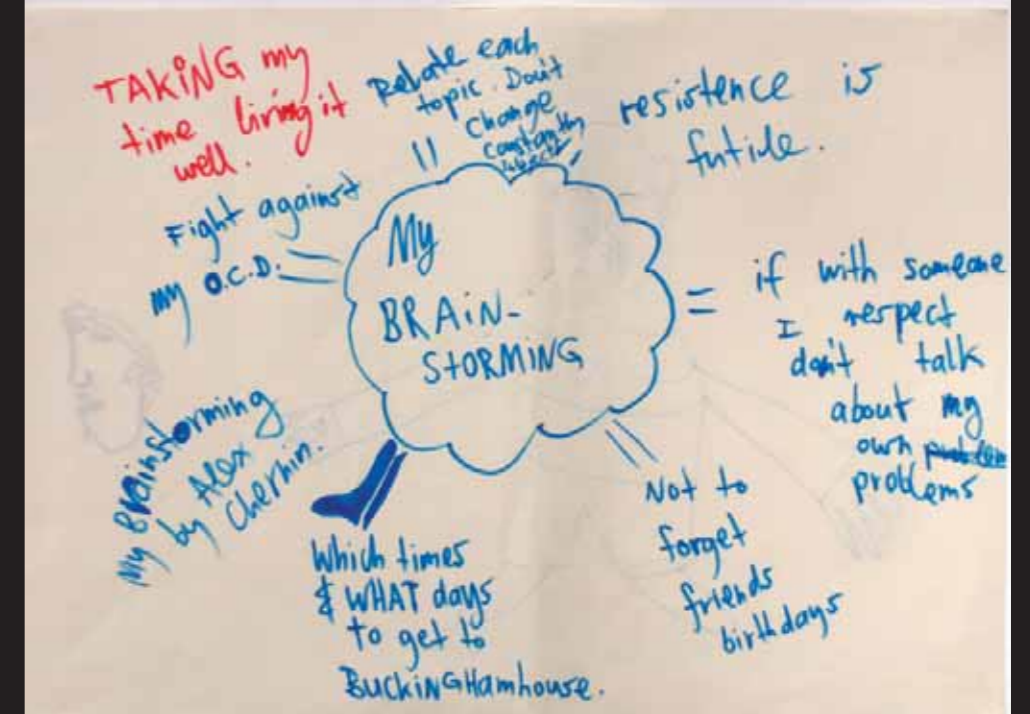 TAKiNG my
time living it
well.
Relate each
topic. Don't
Change
constantly
resistence is
futile.
Fight against
my O.C.D.
My
BRAiN-
STORMING
if with someone
I respect
don't talk
about my
own problem
problems
My Brainstorming
by Alex
Chernin.
Which times
& WHAT days
to get to
BuckiNGHamhouse.
Not to
forget
friends
birthdays